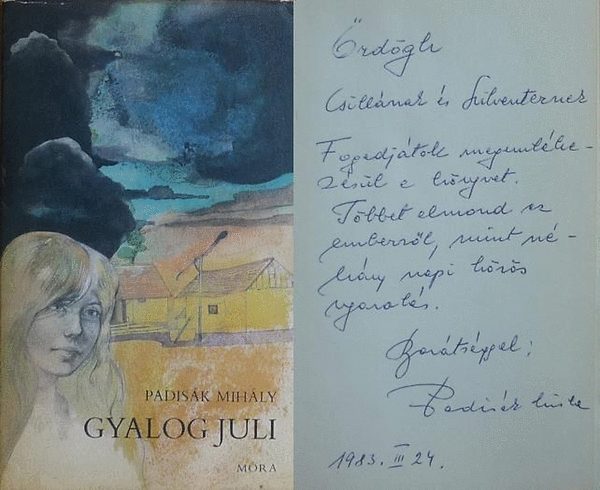 PADISÁK MIHÁLY
GYALOG JULI
MÓRA
Ördögh
Csillának és Szilveszternek
Fogadjátok megemléke-
zésül e könyvet.
Többet elmond az
emberről, mint né-
hány napi közös
nyaralás.
Barátsággal:
Padisák Miska
1983. III 24.